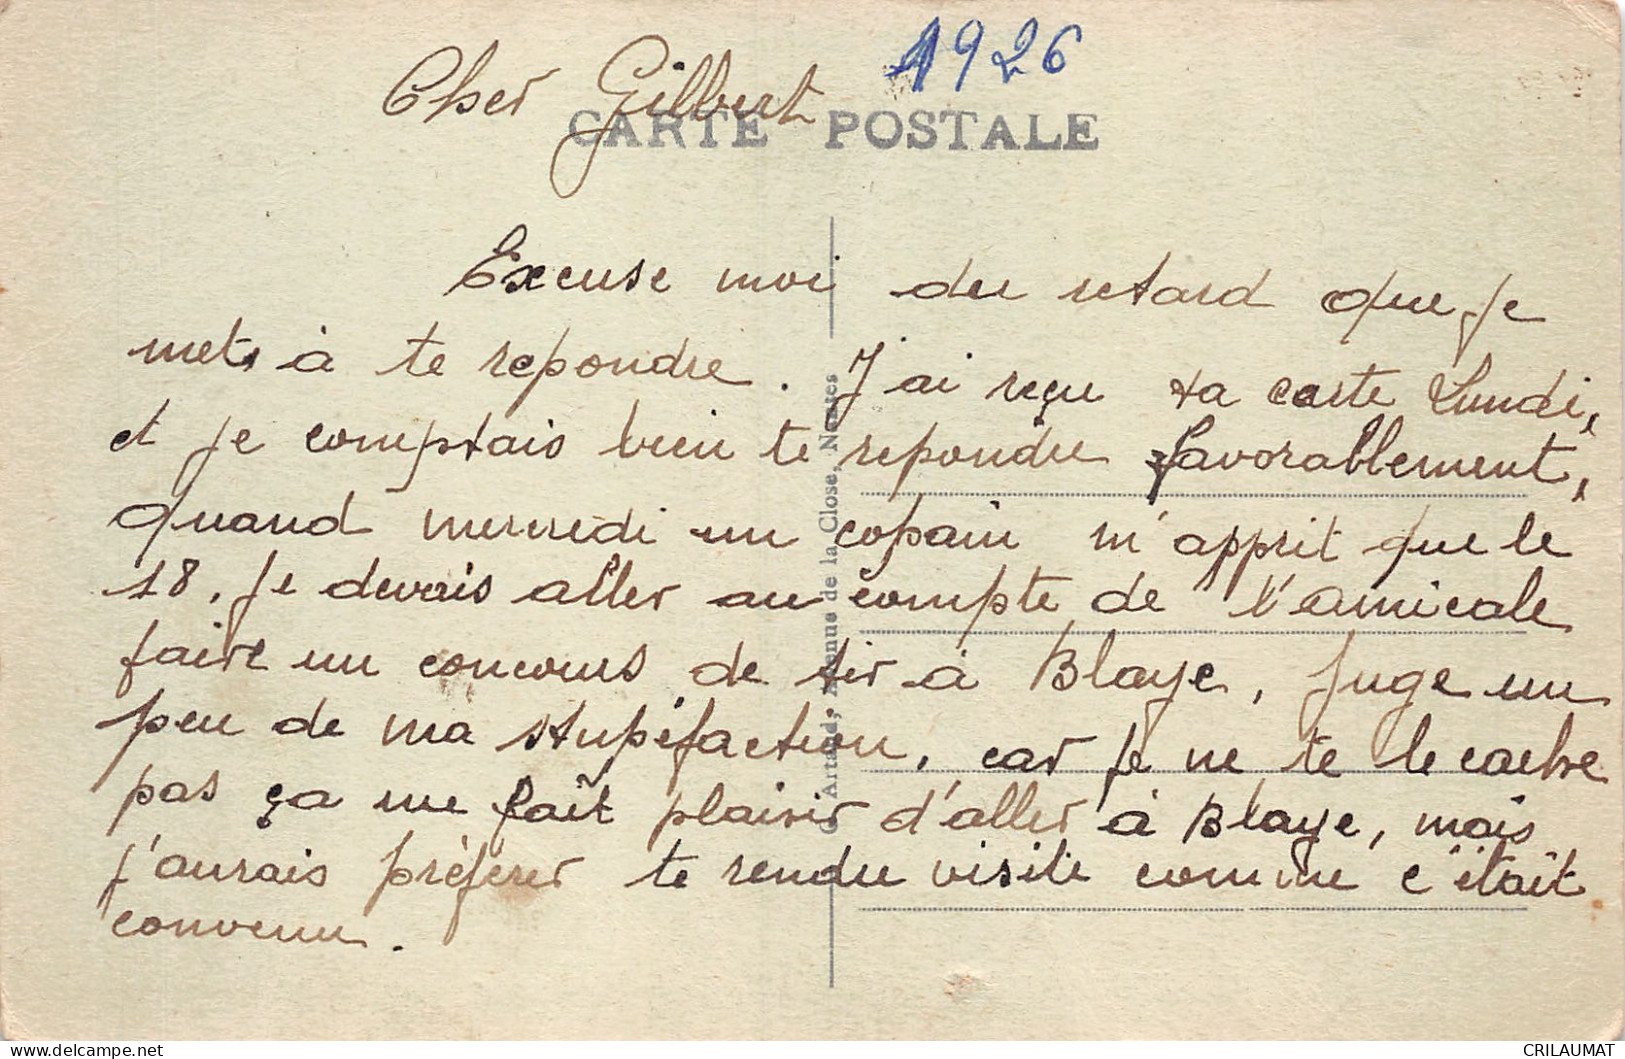 1926
Cher Gilbert
CARTE POSTALE
Excuse moi du retard que je
mets à te repondre. J'ai reçu ta carte Lundi,
et je comptais bien te repondre favorablement,
quand mercredi un copain m'apprit que le
18, je devais aller au compte de l'amicale
faire un concours de tir à Blaye, juge un
peu de ma stupéfaction, car je ne te le cache
pas ça me fait plaisir d'aller à Blaye, mais
j'aurais préferer te rendre visite comme c'était
convenu.
Artaud, Avenue de la Close, Nantes
CRILAUMAT